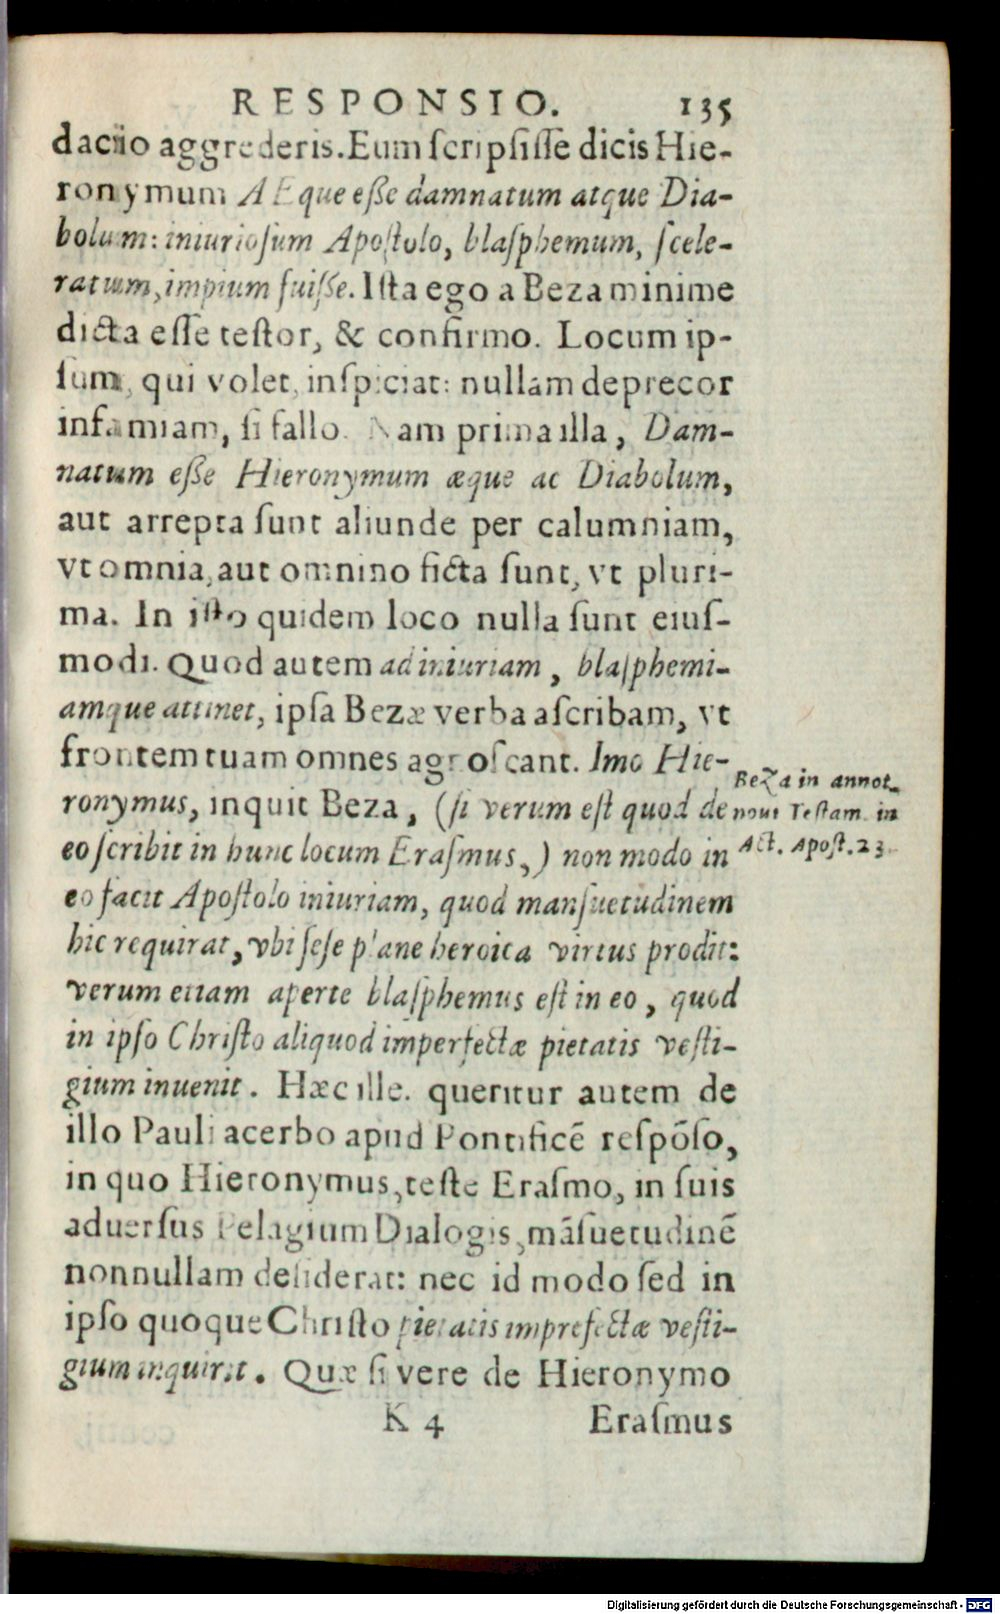 RESPONSIO. 135
daciio aggrederis. Eum ſcripſiſſe dicis Hie-
ronymum AEque eſſe damnatum atque Dia-
bolum: iniurioſum Apoſtolo, blaſphemum, ſcele-
ratum, impium fuiſſe. Iſta ego a Beza minime
dicta eſſe teſtor, & confirmo. Locum ip-
ſum, qui volet, inſpiciat: nullam deprecor
infamiam, ſi fallo. Nam prima illa, Dam-
natum eſſe Hieronymum æque ac Diabolum,
aut arrepta ſunt aliunde per calumniam,
vt omnia, aut omnino ficta ſunt, vt pluri-
ma. In iſto quidem loco nulla ſunt eiuſ-
modi. Quod autem ad iniuriam, blaſphemi-
amque attinet, ipſa Bezæ verba aſcribam, vt
frontem tuam omnes agnoſcant. Imo Hie-
ronymus, inquit Beza, (ſi verum eſt quod de
eo ſcribit in hunc locum Eraſmus,) non modo in
eo facit Apoſtolo iniuriam, quod manſuetudinem
hic requirat, vbi ſeſe plane heroica virtus prodit:
verum etiam aperte blaſphemus eſt in eo, quod
in ipſo Chriſto aliquod imperfectæ pietatis veſti-
gium inuenit. Hæc ille. queritur autem de
illo Pauli acerbo apud Pontificē reſpōſo,
in quo Hieronymus, teſte Eraſmo, in ſuis
aduerſus Pelagium Dialogis, māſuetudinē
nonnullam deſiderat: nec id modo ſed in
ipſo quoque Chriſto pietatis imprefectæ veſti-
gium inquirit. Quæ ſi vere de Hieronymo
K 4 Eraſmus
Beza in annot.
noui Teſtam. in
Act. Apoſt. 23.
Digitalisierung gefördert durch die Deutsche Forschungsgemeinschaft - DFG